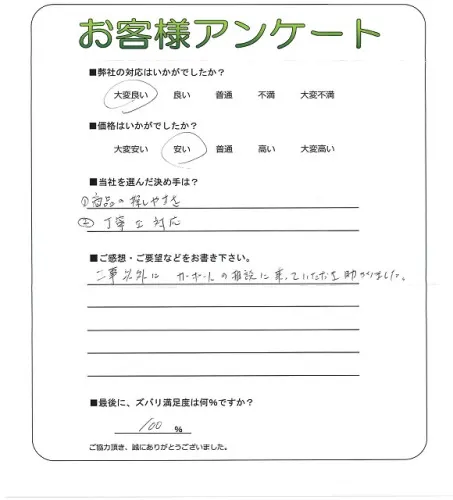 お客様アンケート
■弊社の対応はいかがでしたか？
大変良い 良い 普通 不満 大変不満
■価格はいかがでしたか？
大変安い 安い 普通 高い 大変高い
■当社を選んだ決め手は？
①商品の探しやすさ
② 丁寧な対応
■ご感想・ご要望などをお書き下さい。
工事以外に カーポートの相談に乗っていただき助かりました。
■最後に、ズバリ満足度は何％ですか？
100 %
ご協力頂き、誠にありがとうございました。